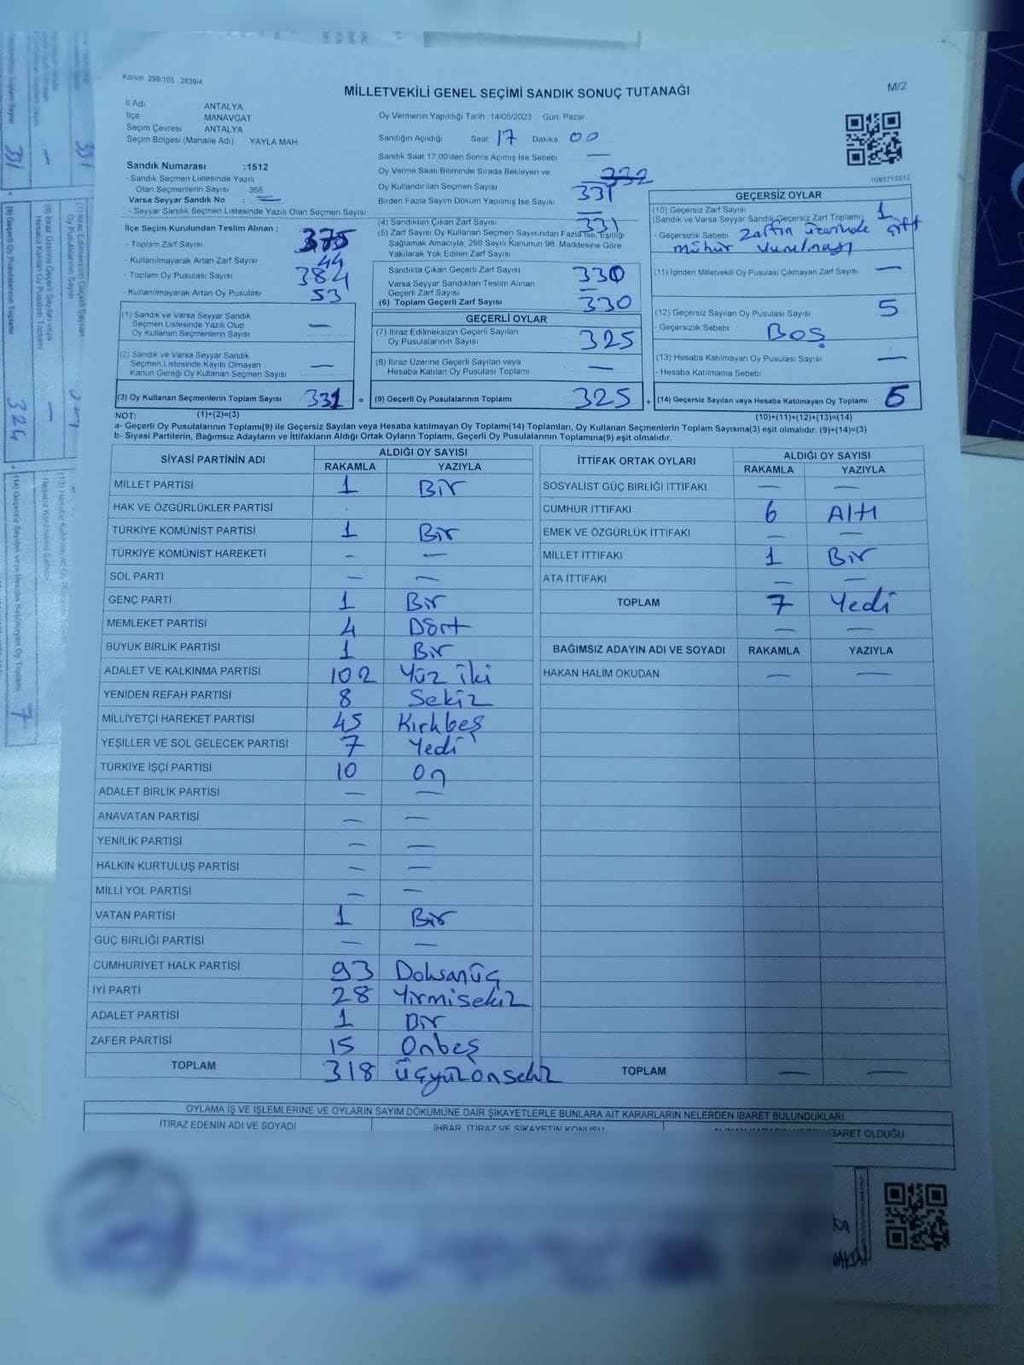 Kanun 298/105 - 2839/4
MİLLETVEKİLİ GENEL SEÇİMİ SANDIK SONUÇ TUTANAĞI
M/2
İl Adı ANTALYA
İlçe MANAVGAT
Seçim Çevresi ANTALYA
Seçim Bölgesi (Mahalle Adı) YAYLA MAH.
Sandık Numarası :1512
Sandık Seçmen Listesinde Yazılı
Olan Seçmenlerin Sayısı 366
Varsa Seyyar Sandık No : —
- Seyyar Sandık Seçmen Listesinde Yazılı Olan Seçmen Sayısı
İlçe Seçim Kurulundan Teslim Alınan ;
- Toplam Zarf Sayısı 375
- Kullanılmayarak Artan Zarf Sayısı 44
- Toplam Oy Pusulası Sayısı 384
- Kullanılmayarak Artan Oy Pusulası 53
(1) Sandık ve Varsa Seyyar Sandık
Seçmen Listesinde Yazılı Olup
Oy Kullanan Seçmenlerin Sayısı —
(2) Sandık ve Varsa Seyyar Sandık
Seçmen Listesinde Kayıtlı Olmayan
Kanun Gereği Oy Kullanan Seçmen Sayısı —
(3) Oy Kullanan Seçmenlerin Toplam Sayısı 331 =
Oy Vermenin Yapıldığı Tarih 14/05/2023 Gün: Pazar
Sandığın Açıldığı Saat 17 Dakika 00
Sandık Saat 17:00'den Sonra Açılmış İse Sebebi —
Oy Verme Saati Bitiminde Sırada Bekleyen ve 332
Oy Kullandırılan Seçmen Sayısı 331
Birden Fazla Sayım Döküm Yapılmış İse Sayısı —
(4) Sandıktan Çıkan Zarf Sayısı 331
(5) Zarf Sayısı Oy Kullanan Seçmen Sayısından Fazla İse, Eşitliği
Sağlamak Amacıyla, 298 Sayılı Kanunun 98. Maddesine Göre
Yakılarak Yok Edilen Zarf Sayısı
Sandıkta Çıkan Geçerli Zarf Sayısı 330
Varsa Seyyar Sandıktan Teslim Alınan
Geçerli Zarf Sayısı —
(6) Toplam Geçerli Zarf Sayısı 330
GEÇERLİ OYLAR
(7) İtiraz Edilmeksizin Geçerli Sayılan
Oy Pusulalarının Sayısı 325
(8) İtiraz Üzerine Geçerli Sayılan veya
Hesaba Katılan Oy Pusulası Toplamı —
(9) Geçerli Oy Pusulalarının Toplamı 325 +
GEÇERSİZ OYLAR
(10) Geçersiz Zarf Sayısı 1
(Sandık ve Varsa Seyyar Sandık Geçersiz Zarf Toplamı)
- Geçersizlik Sebebi Zarfın üzerinde çift
mühür vurulması
(11) İçinden Milletvekili Oy Pusulası Çıkmayan Zarf Sayısı —
(12) Geçersiz Sayılan Oy Pusulası Sayısı 5
Geçersizlik Sebebi BOŞ
(13) Hesaba Katılmayan Oy Pusulası Sayısı —
- Hesaba Katılmama Sebebi
(14) Geçersiz Sayılan veya Hesaba Katılmayan Oy Toplamı 5
NOT: (1)+(2)=(3) (10)+(11)+(12)+(13)=(14)
a- Geçerli Oy Pusulalarının Toplamı(9) ile Geçersiz veya Hesaba katılmayan Oy Toplamı(14) Toplamları, Oy Kullanan Seçmenlerin Toplam Sayısına(3) eşit olmalıdır. (9)+(14)=(3)
b- Siyasi Partilerin, Bağımsız Adayların ve İttifakların Aldığı Ortak Oyların Toplamı, Geçerli Oy Pusulalarının Toplamına(9) eşit olmalıdır.
SİYASİ PARTİNİN ADI ALDIĞI OY SAYISI
RAKAMLA YAZIYLA
MİLLET PARTİSİ 1 Bir
HAK VE ÖZGÜRLÜKLER PARTİSİ
TÜRKİYE KOMÜNİST PARTİSİ 1 Bir
TÜRKİYE KOMÜNİST HAREKETİ — —
SOL PARTİ — —
GENÇ PARTİ 1 Bir
MEMLEKET PARTİSİ 4 Dört
BÜYÜK BİRLİK PARTİSİ 1 Bir
ADALET VE KALKINMA PARTİSİ 102 Yüz iki
YENİDEN REFAH PARTİSİ 8 Sekiz
MİLLİYETÇİ HAREKET PARTİSİ 45 Kırkbeş
YEŞİLLER VE SOL GELECEK PARTİSİ 7 Yedi
TÜRKİYE İŞÇİ PARTİSİ 10 On
ADALET BİRLİK PARTİSİ — —
ANAVATAN PARTİSİ — —
YENİLİK PARTİSİ — —
HALKIN KURTULUŞ PARTİSİ — —
MİLLİ YOL PARTİSİ — —
VATAN PARTİSİ 1 Bir
GÜÇ BİRLİĞİ PARTİSİ — —
CUMHURİYET HALK PARTİSİ 93 Doksanüç
İYİ PARTİ 28 Yirmisekiz
ADALET PARTİSİ 1 Bir
ZAFER PARTİSİ 15 Onbeş
TOPLAM 318 üçyüzonsekiz
İTTİFAK ORTAK OYLARI ALDIĞI OY SAYISI
RAKAMLA YAZIYLA
SOSYALİST GÜÇ BİRLİĞİ İTTİFAKI — —
CUMHUR İTTİFAKI 6 Altı
EMEK VE ÖZGÜRLÜK İTTİFAKI — —
MİLLET İTTİFAKI 1 Bir
ATA İTTİFAKI — —
TOPLAM 7 Yedi
— —
BAĞIMSIZ ADAYIN ADI VE SOYADI RAKAMLA YAZIYLA
HAKAN HALİM OKUDAN — —
TOPLAM — —
OYLAMA İŞ VE İŞLEMLERİNE VE OYLARIN SAYIM DÖKÜMÜNE DAİR ŞİKAYETLERLE BUNLARA AİT KARARLARIN NELERDEN İBARET BULUNDUKLARI
İTİRAZ EDENİN ADI VE SOYADI İHBAR, İTİRAZ VE ŞİKAYETİN KONUSU